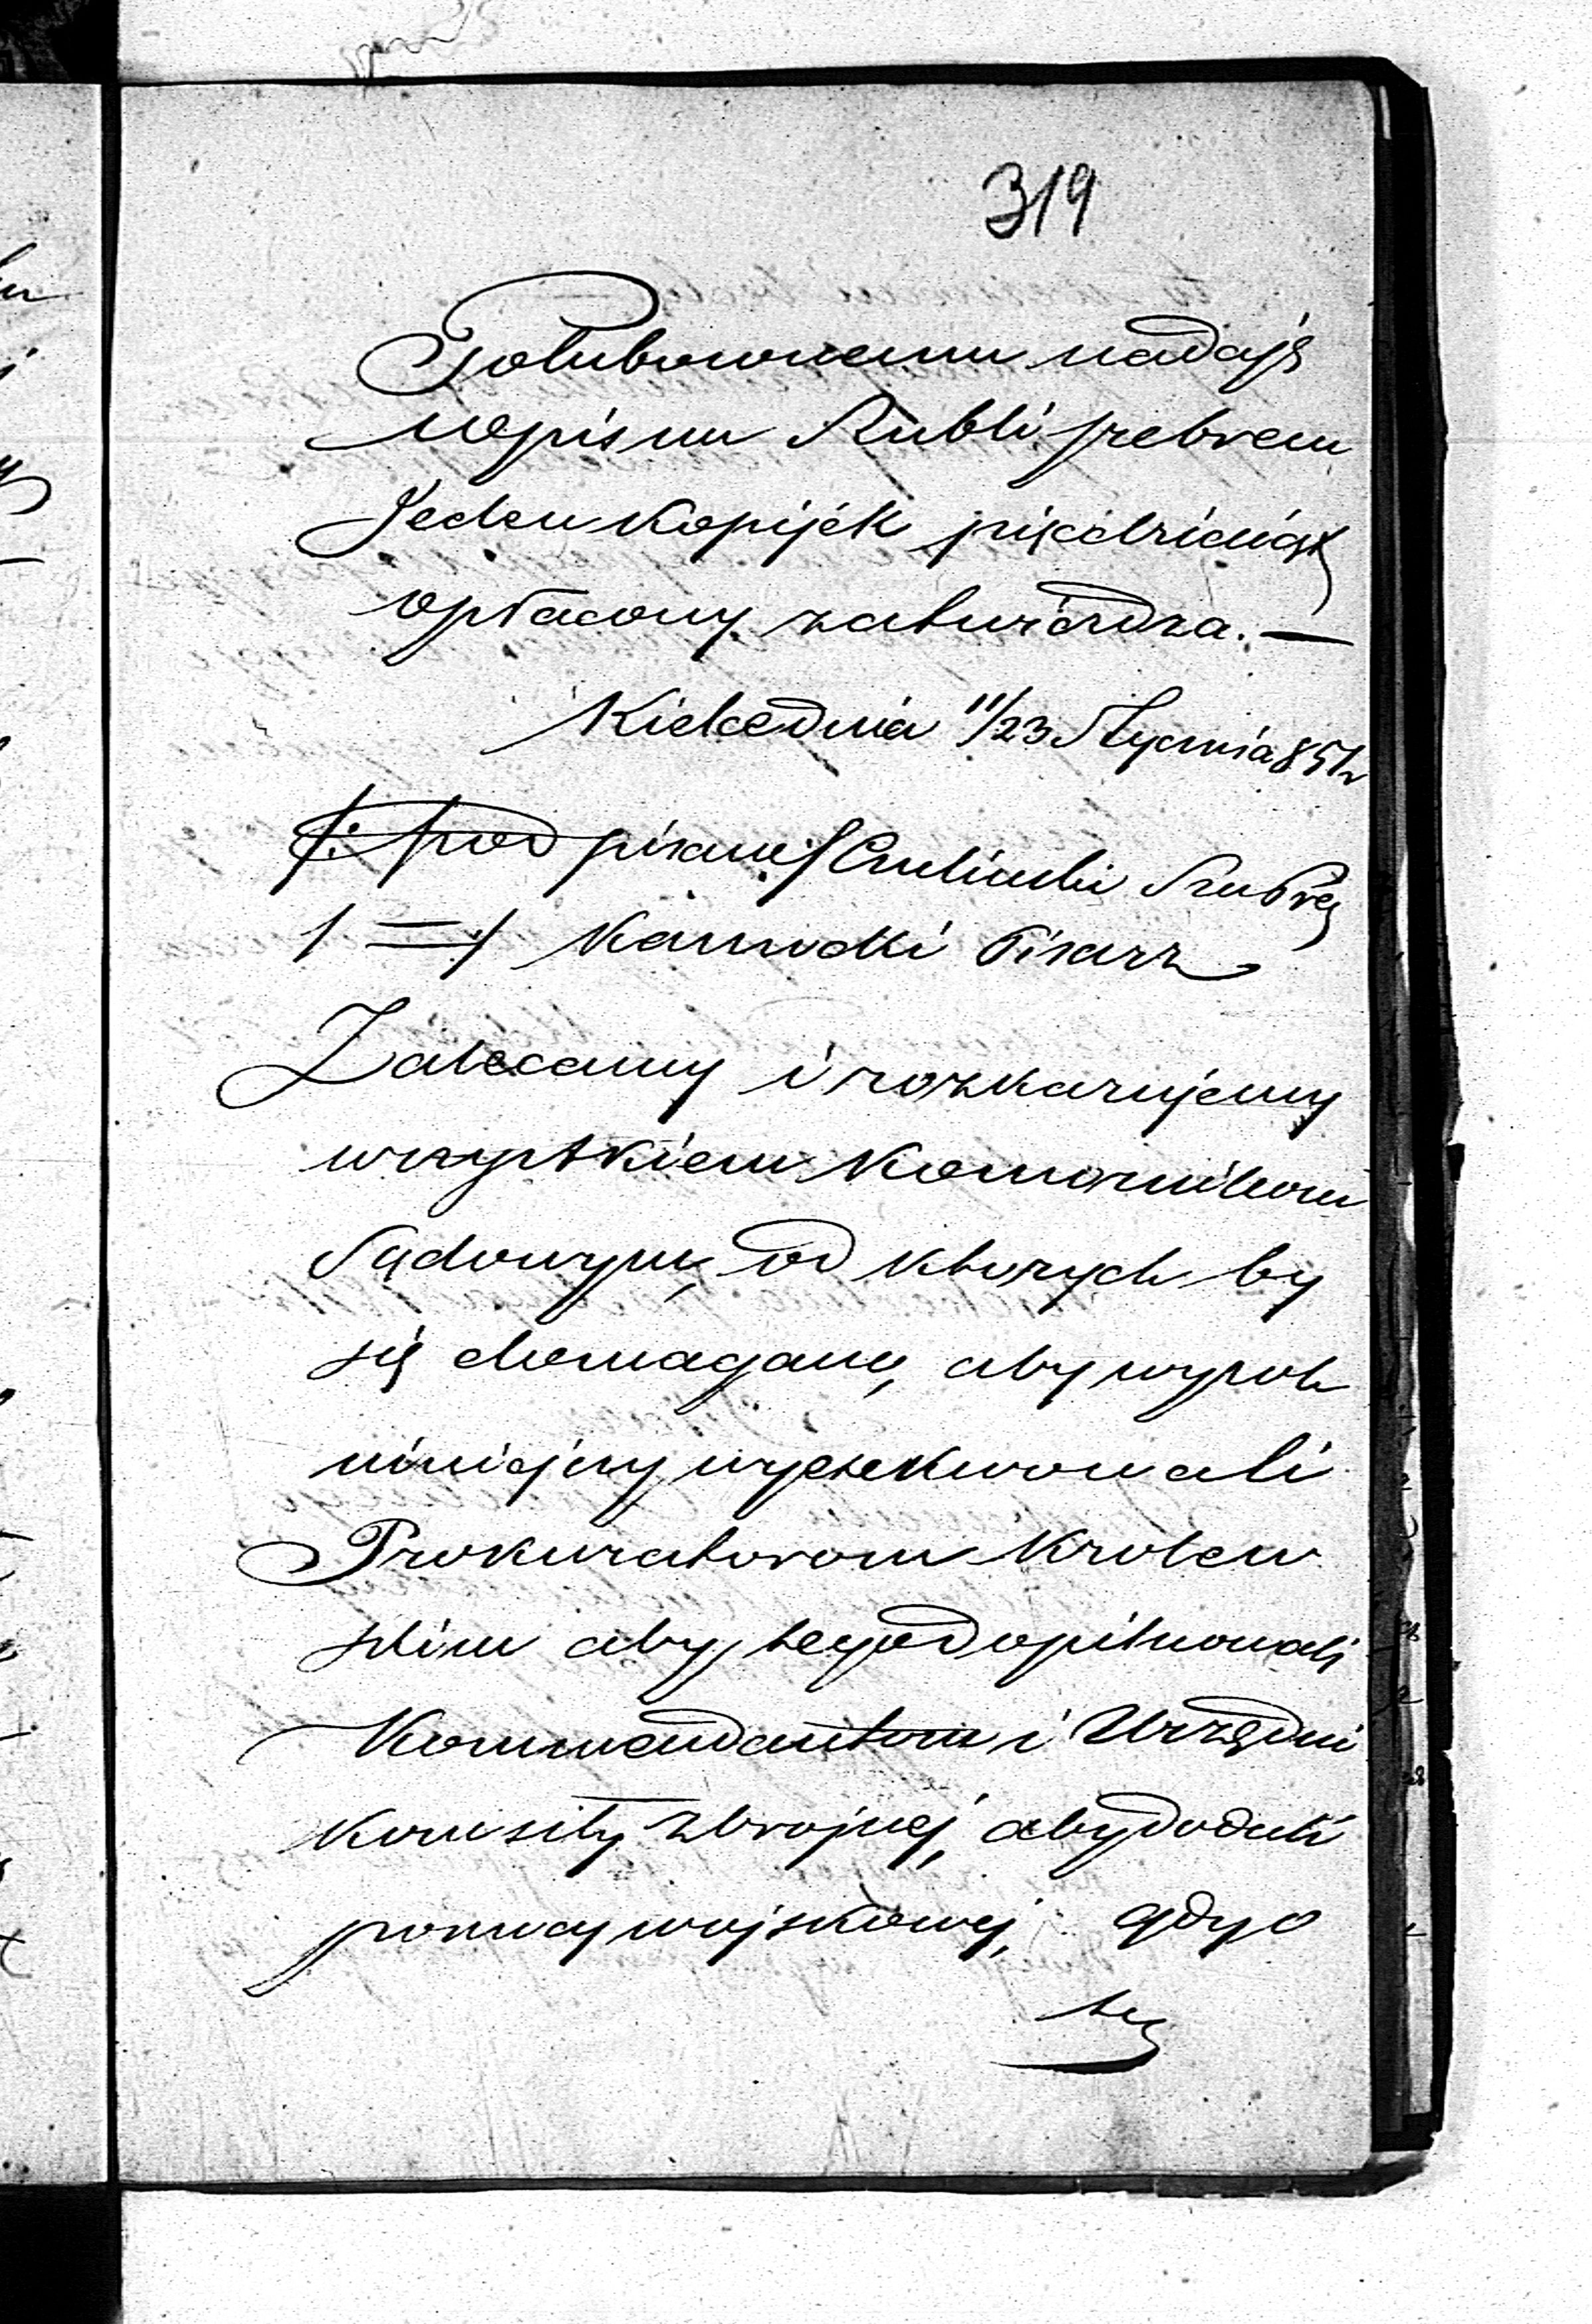 319
Polubownemu nadaje
wpis na Rubli srebrem
Jeden kopijek pięćdziesiąt
opłacony zatwierdza. —
Kielce dnia 11/23 Stycznia 851 r
/: podpisane :/ Sędzia Prez
/ = / Pisarz
Zalecamy i rozkazujemy
wszystkiem Komornikom
Sądowym, od ktorych by
się domagano, aby wyrok
niniejszy wyexekwowali
Prokuratorom Krolew
skim aby tego dopilnowali
Kommendantom i Urzędni
kom siły zbrojnej, aby dodali
pomocy wojskowej, gdy o
to